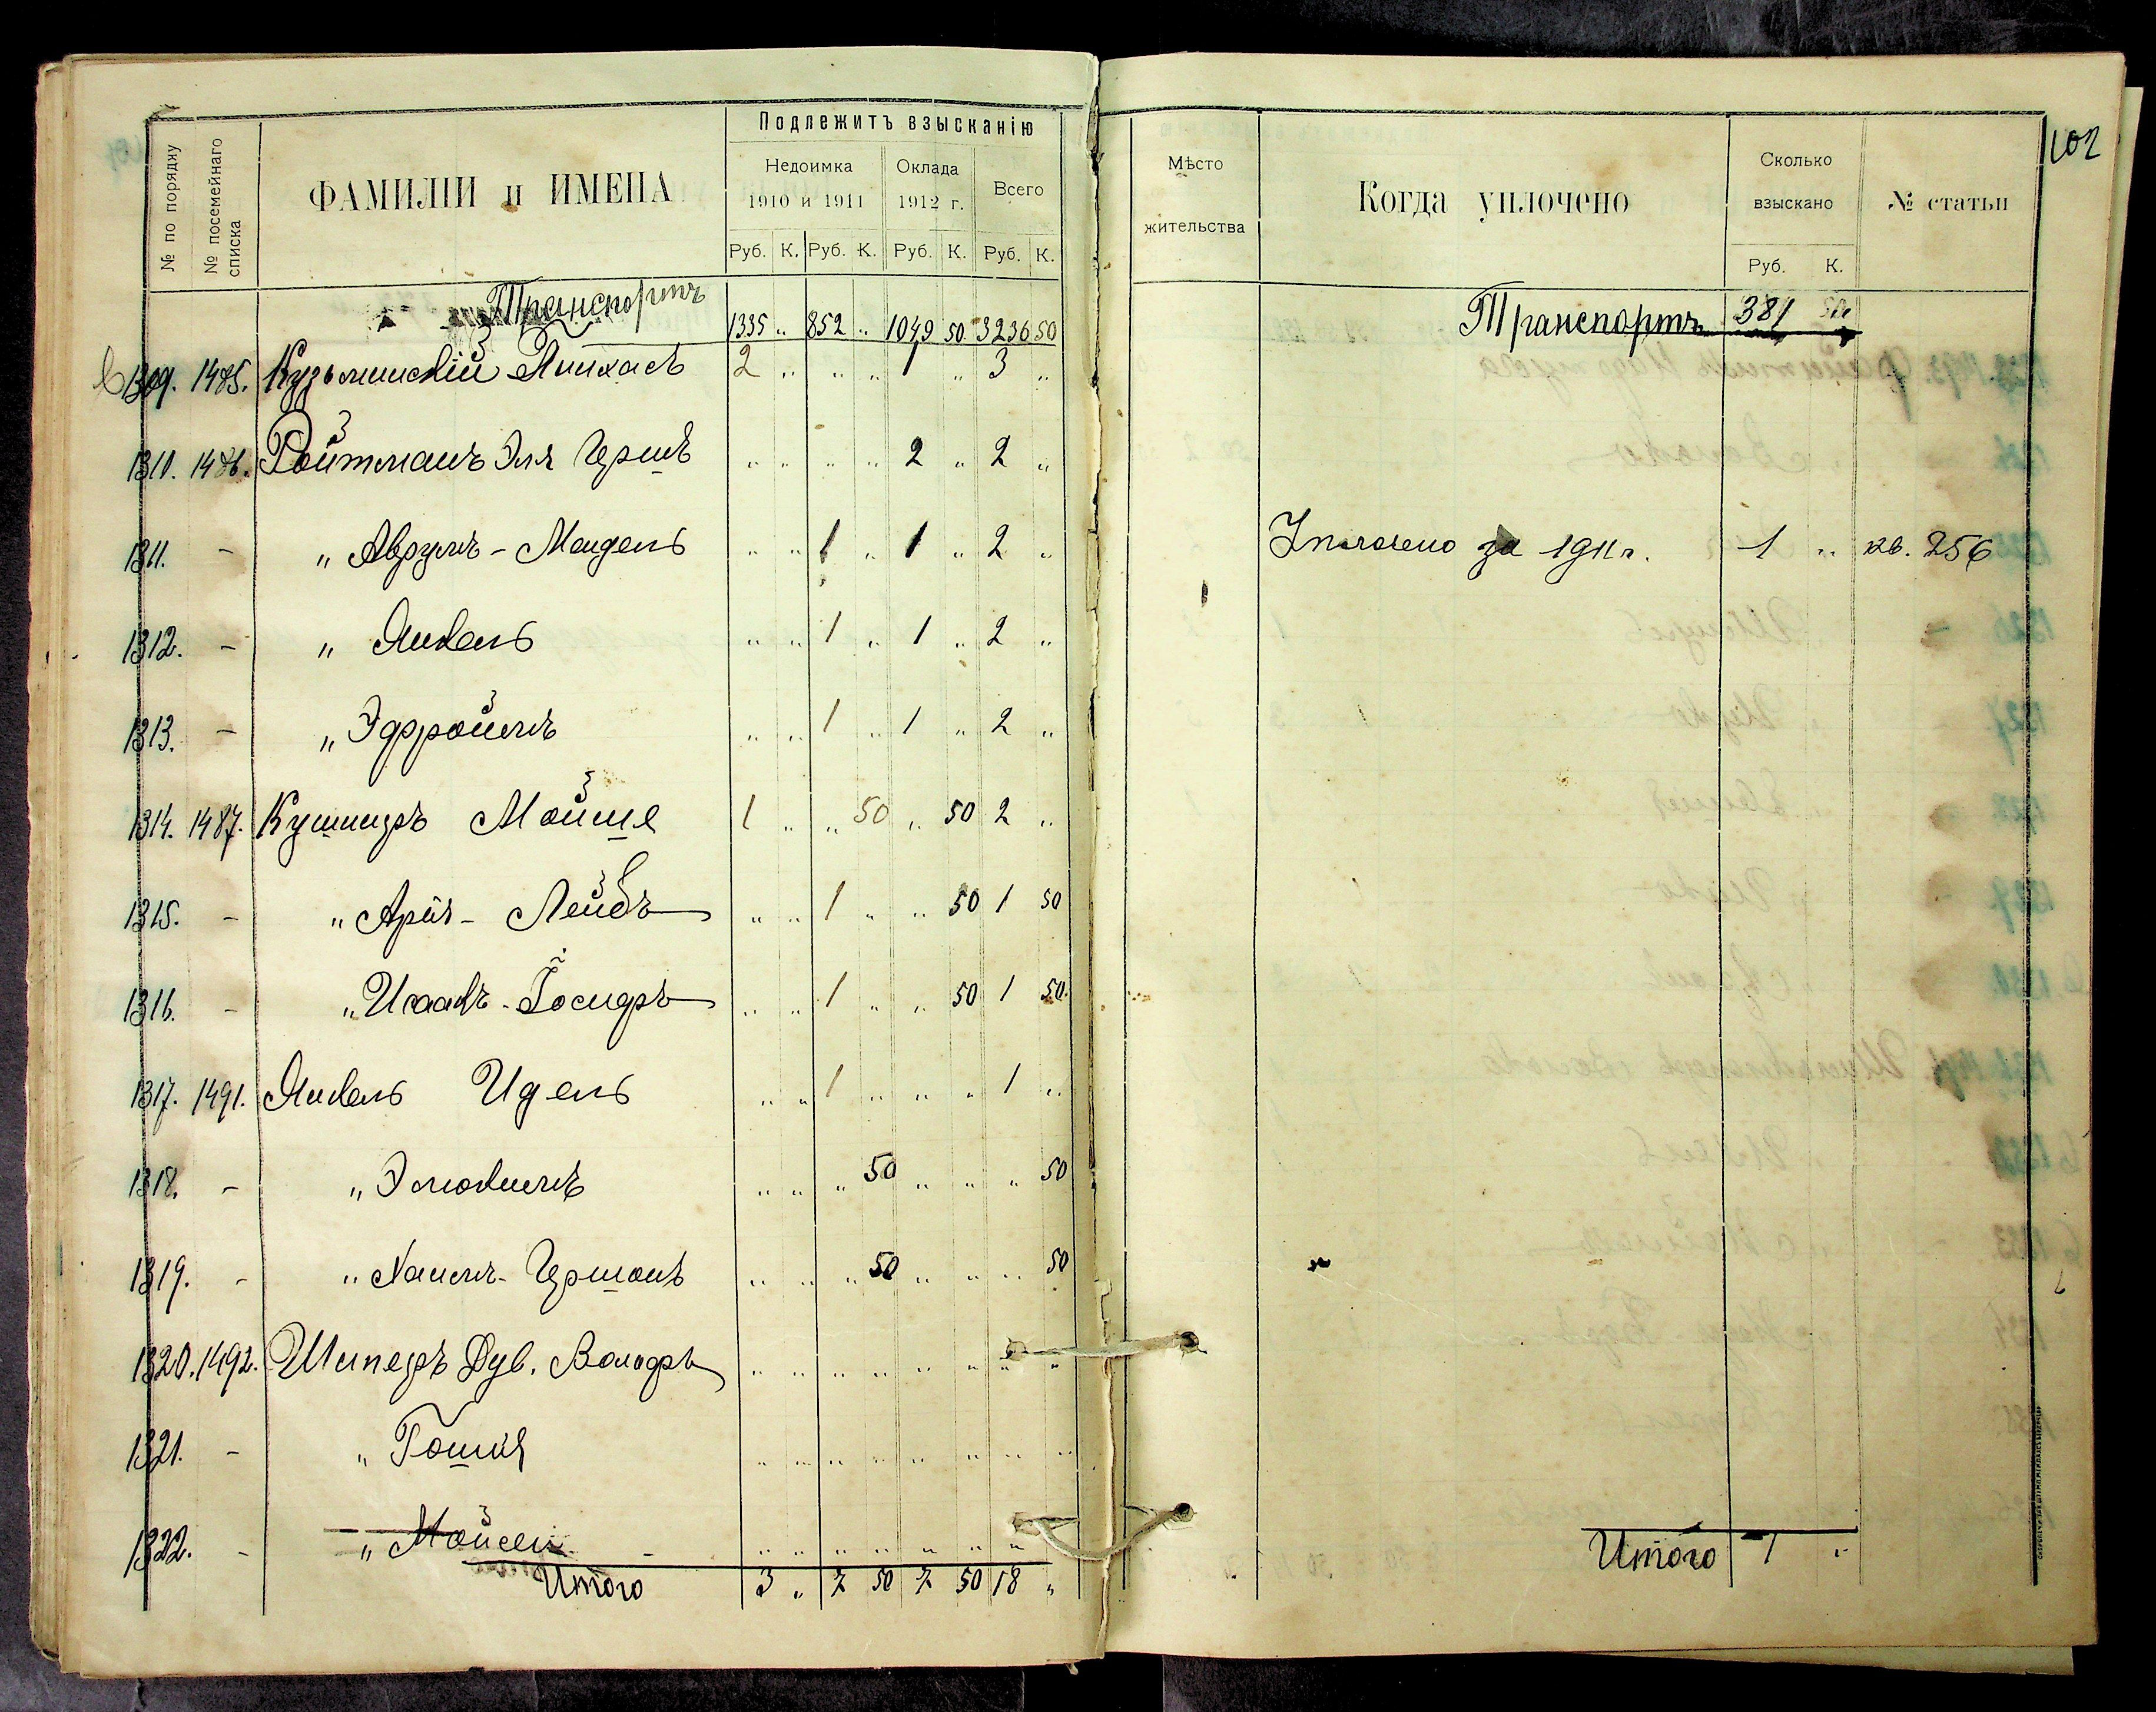 № по порядку № посемейнаго списка ФАМИЛІИ и ИМЕНА Подлежитъ взысканію
Недоимка 1910 и 1911 Оклада 1912 г. Всего
Руб. К. Руб. К. Руб. К. Руб. К.
Транспортъ 1335 „ 852 „ 1049 50 3236 50
1309. 1485. Кузьминскій Пинхасъ 2 „ „ „ 1 „ 3 „
1310. 1486. Ройтманъ Эля Гершъ „ „ „ „ 2 „ 2 „
1311. - „ Аврумъ-Мендель „ „ 1 „ 1 „ 2 „
1312. - „ Янкель „ „ 1 „ 1 „ 2 „
1313. - „ Эфроимъ „ „ 1 „ 1 „ 2 „
1314. 1487. Кушниръ Мойше 1 „ „ 50 „ 50 2 „
1315. - „ Арія-Лейбъ „ „ 1 „ „ 50 1 50
1316. - „ Исаакъ-Іосифъ „ „ 1 „ „ 50 1 50
1317. 1491. Янкель Идель „ „ 1 „ „ „ 1 „
1318. - „ Эльокимъ „ „ „ 50 „ „ „ 50
1319. - „ Хаимъ-Гершонъ „ „ „ 50 „ „ „ 50
1320. 1492. Шлеперъ Дув. Вольфъ „ „ „ „ „ „ „ „
1321. - „ Гошія „ „ „ „ „ „ „ „
1322. - „ Мойсей „ „ „ „ „ „ „ „
Итого 3 „ 7 50 7 50 18 „
102
Мѣсто жительства Когда уплочено Сколько взыскано № статьи
Руб. К.
Транспортъ 381 50
Уплочено за 1911 г. 1 „ кв. 256
Итого 1 „